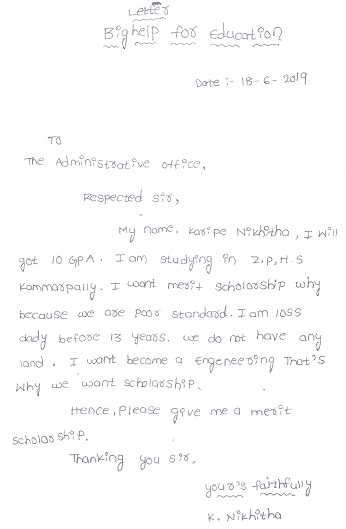 Letter
Big help for Education
Date :- 18-6-2019
To
The Administrative office,
Respected sir,
My name. Karipe Nikhitha, I will
got 10 GPA. I am studying in Z.P.H.S
Kammarpally. I want merit scholorship why
because we are poor standard. I am loss
dady before 13 years. we do not have any
land. I want become a engeneering That's
why we want scholarship.
Hence, Please give me a merit
scholarship.
Thanking you sir,
your's faithfully
K. Nikhitha